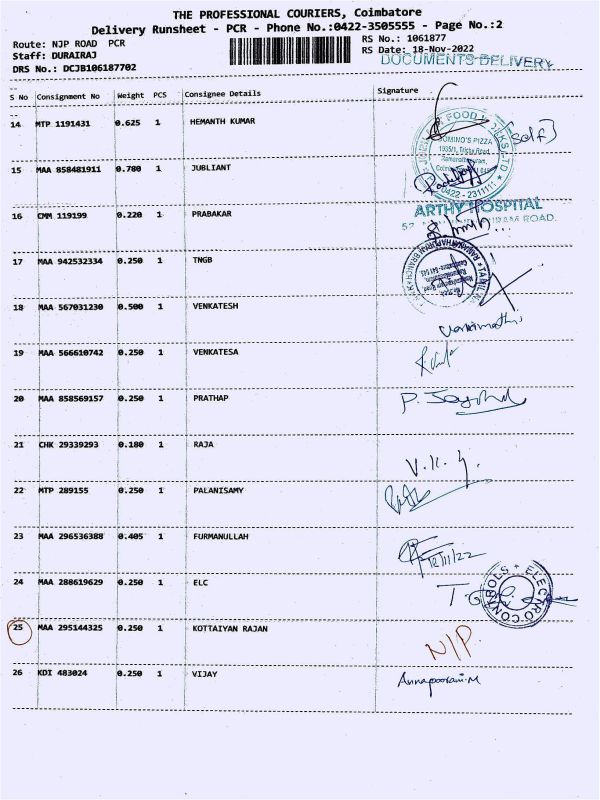 THE PROFESSIONAL COURIERS, Coimbatore
Delivery Runsheet - PCR - Phone No.:0422-3505555 - Page No.:2
Route: NJP ROAD PCR
RS No.: 1061877
Staff: DURAIRAJ
RS Date: 18-Nov-2022
DRS No.: DCJB106187702
DOCUMENTS DELIVERY
S No Consignment No Weight PCS Consignee Details Signature
14 MTP 1191431 0.625 1 HEMANTH KUMAR
[self]
FOOD
DOMINO'S PIZZA
0422 - 2311111
15 MAA 858481911 0.780 1 JUBLIANT
16 CMM 119199 0.220 1 PRABAKAR
ARTHY HOSPITAL
ROAD.
17 MAA 942532334 0.250 1 TNGB
18 MAA 567031230 0.500 1 VENKATESH
19 MAA 566610742 0.250 1 VENKATESA
20 MAA 858569157 0.250 1 PRATHAP
21 CHK 29339293 0.180 1 RAJA
22 MTP 289155 0.250 1 PALANISAMY
23 MAA 296536388 0.405 1 FURMANULLAH
24 MAA 288619629 0.250 1 ELC
ELECTRO CONTROLS
25 MAA 295144325 0.250 1 KOTTAIYAN RAJAN
N/P.
26 KDI 483024 0.250 1 VIJAY
Annapoorani.M